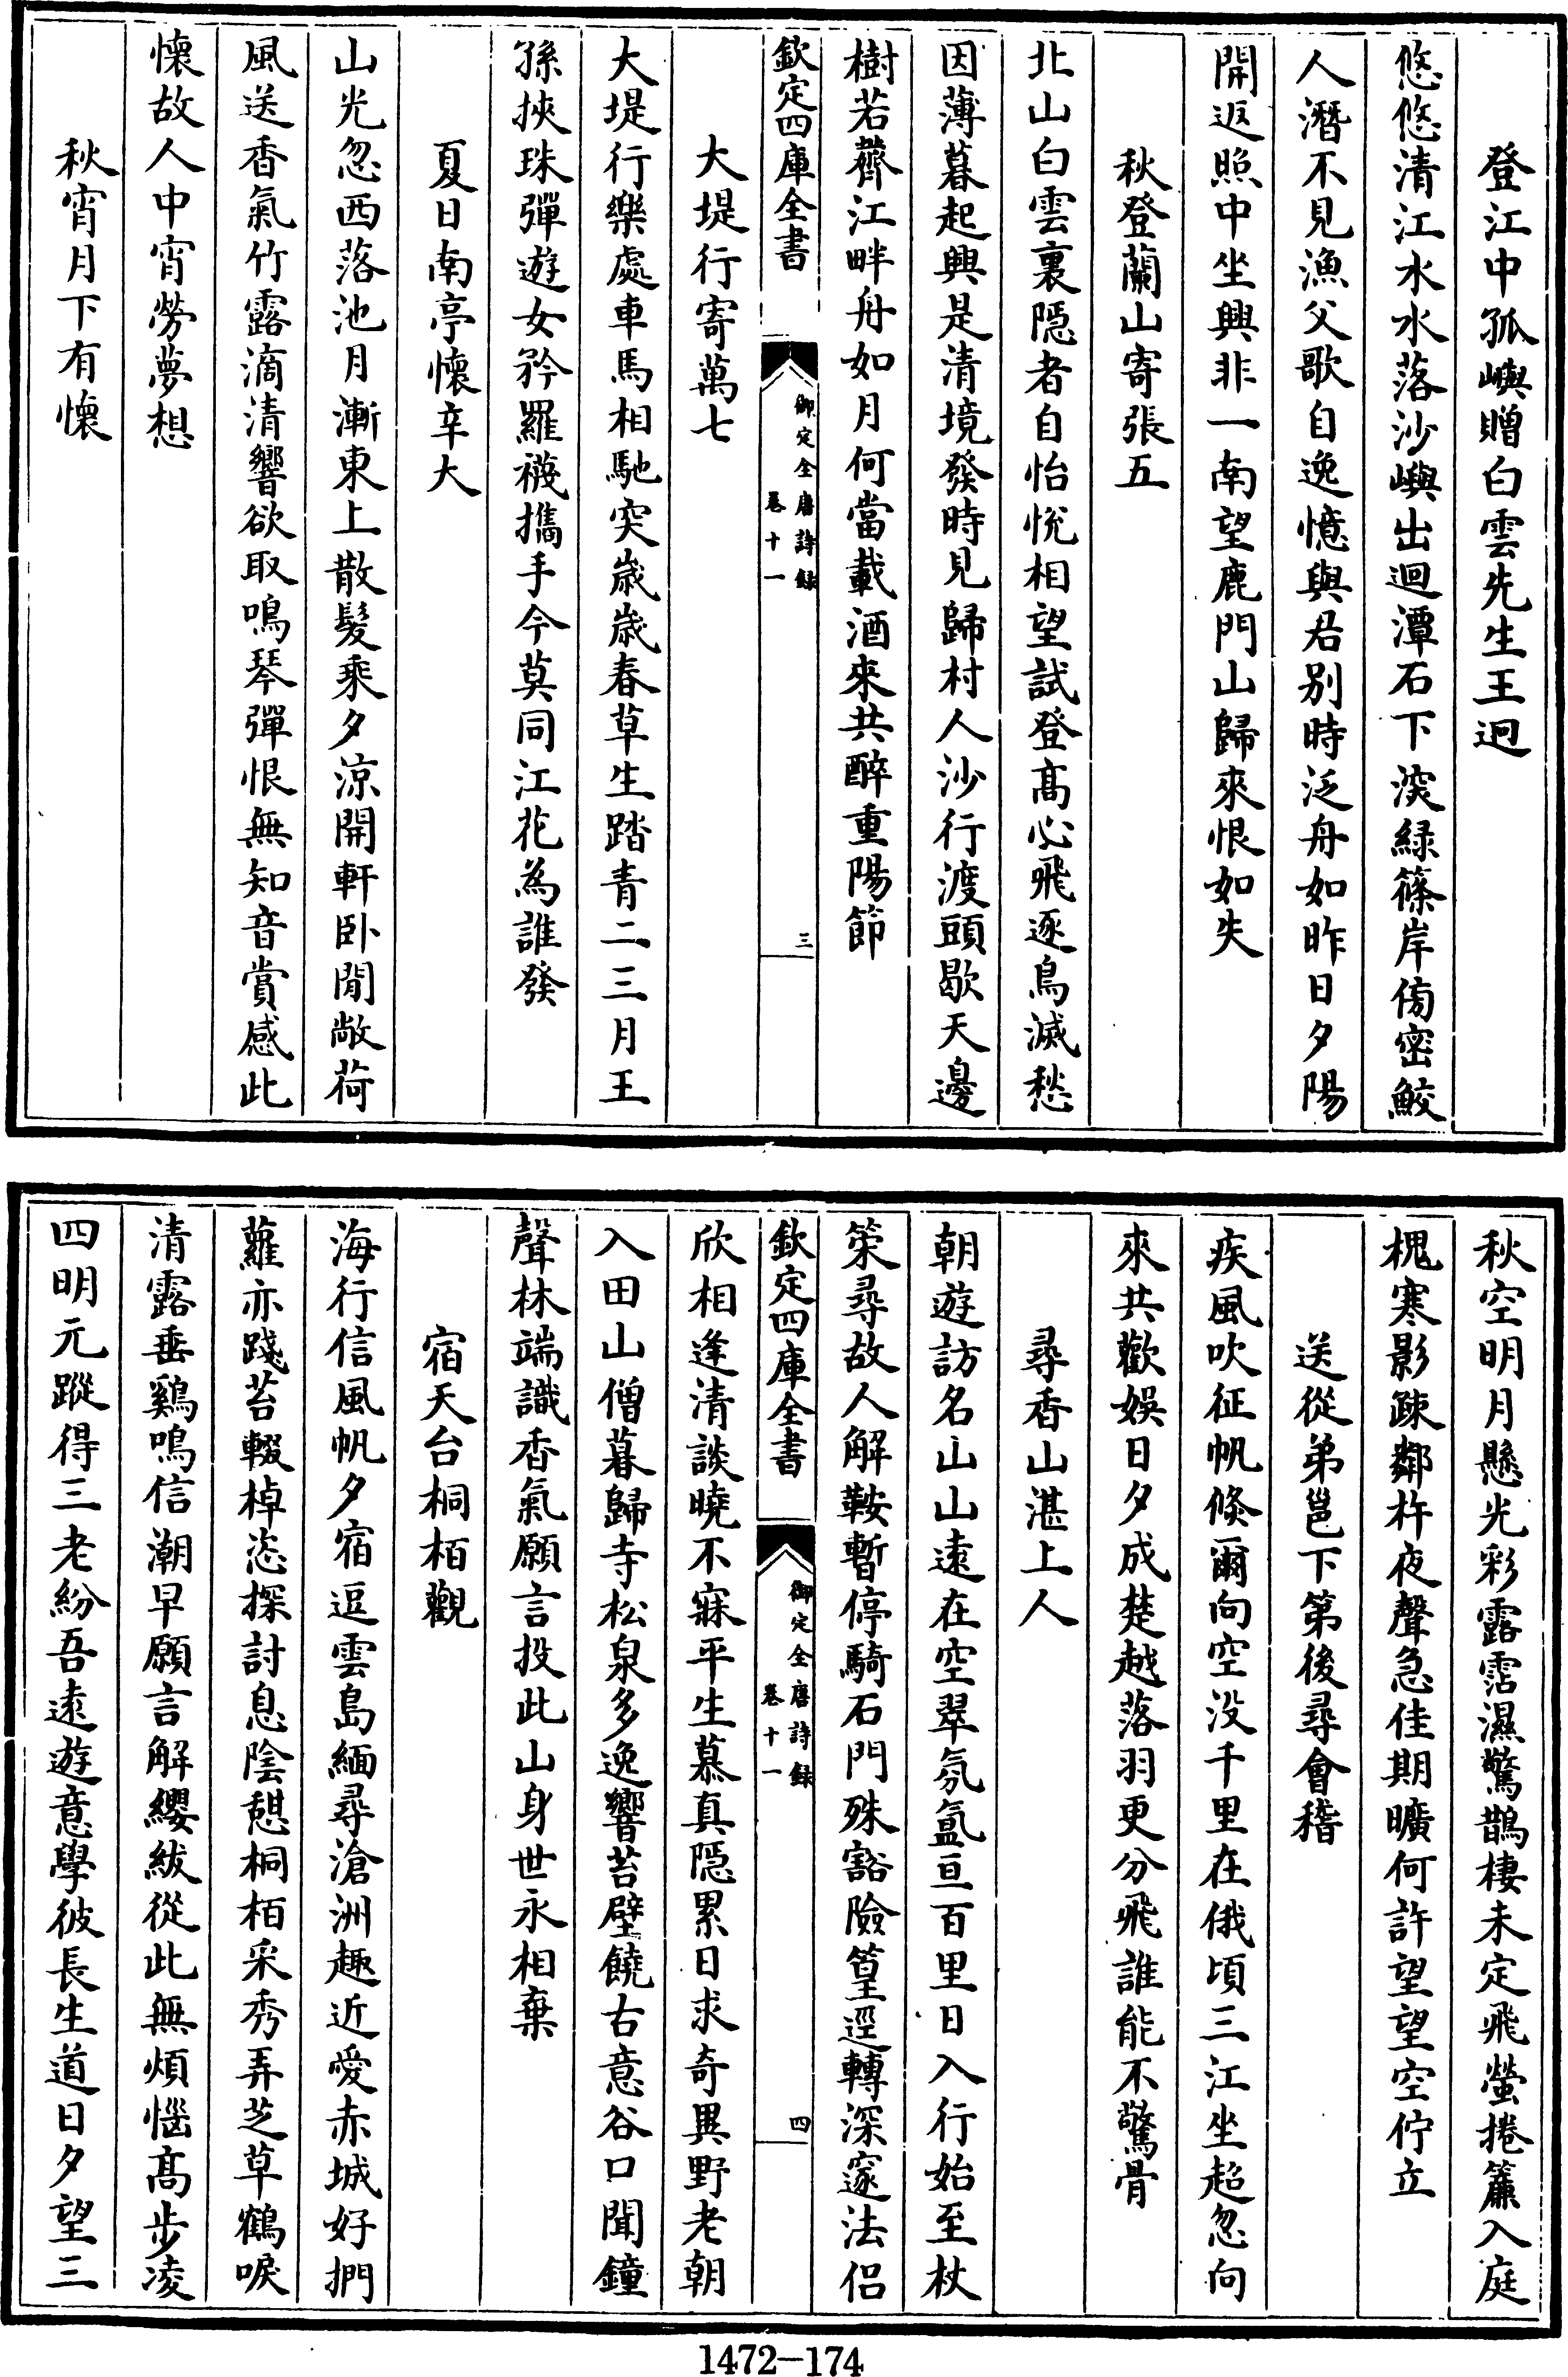 登江中孤嶼贈白雲先生王迥
悠悠清江水水落沙嶼出迴潭石下深緑篠岸傍密鮫
人潛不見漁父歌自逸憶與君别時泛舟如昨日夕陽
開返照中坐興非一南望鹿門山歸來恨如失
秋登蘭山寄張五
北山白雲裏隠者自怡悦相望試登髙心飛逐鳥滅愁
因薄暮起興是清境發時見歸村人沙行渡頭歇天邊
樹若薺江畔舟如月何當載酒來共醉重陽節
欽定四庫全書
御定全唐詩録
卷十一
三
大堤行寄萬七
大堤行樂處車馬相馳突歳歳春草生踏青二三月王
孫挾珠彈遊女矜羅襪攜手今莫同江花為誰發
夏日南亭懐辛大
山光忽西落池月漸東上散髮乘夕涼開軒卧閒敞荷
風送香氣竹露滴清響欲取鳴琴彈恨無知音賞感此
懐故人中宵勞夢想
秋宵月下有懐
秋空明月懸光彩露霑濕驚鵲棲未定飛螢捲簾入庭
槐寒影疎鄰杵夜聲急佳期曠何許望望空佇立
送從弟邕下第後尋會稽
疾風吹征帆倐爾向空没千里在俄頃三江坐超忽向
來共歡娱日夕成楚越落羽更分飛誰能不驚骨
尋香山湛上人
朝遊訪名山山逺在空翠氛氲亘百里日入行始至杖
策尋故人解鞍暫停騎石門殊豁險篁逕轉深邃法侣
欽定四庫全書
御定全唐詩録
卷十一
四
欣相逢清談曉不寐平生慕真隠累日求奇異野老朝
入田山僧暮歸寺松泉多逸響苔壁饒古意谷口聞鐘
聲林端識香氣願言投此山身世永相棄
宿天台桐栢觀
海行信風帆夕宿逗雲島緬尋滄洲趣近愛赤城好捫
蘿亦踐苔輟棹恣探討息陰憇桐栢采秀弄芝草鶴唳
清露垂鷄鳴信潮早願言解纓紱從此無煩惱髙歩凌
四明元蹤得三老紛吾逺遊意學彼長生道日夕望三
1472-174